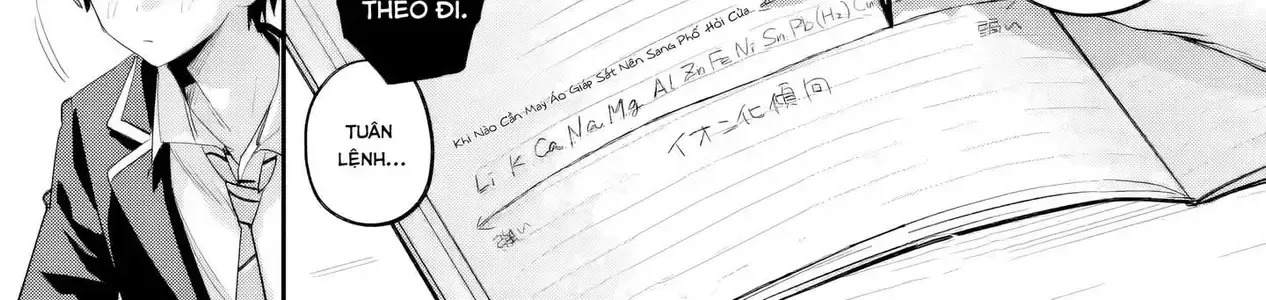 THEO ĐI.
TUÂN
LỆNH...
Khi Nào Cần May Áo Giáp Sắt Nên Sang Phố Hỏi Cửa
Li K Ca Na Mg Al Zn Fe Ni Sn Pb (H₂) Cu
イオン化傾向
強い
弱い